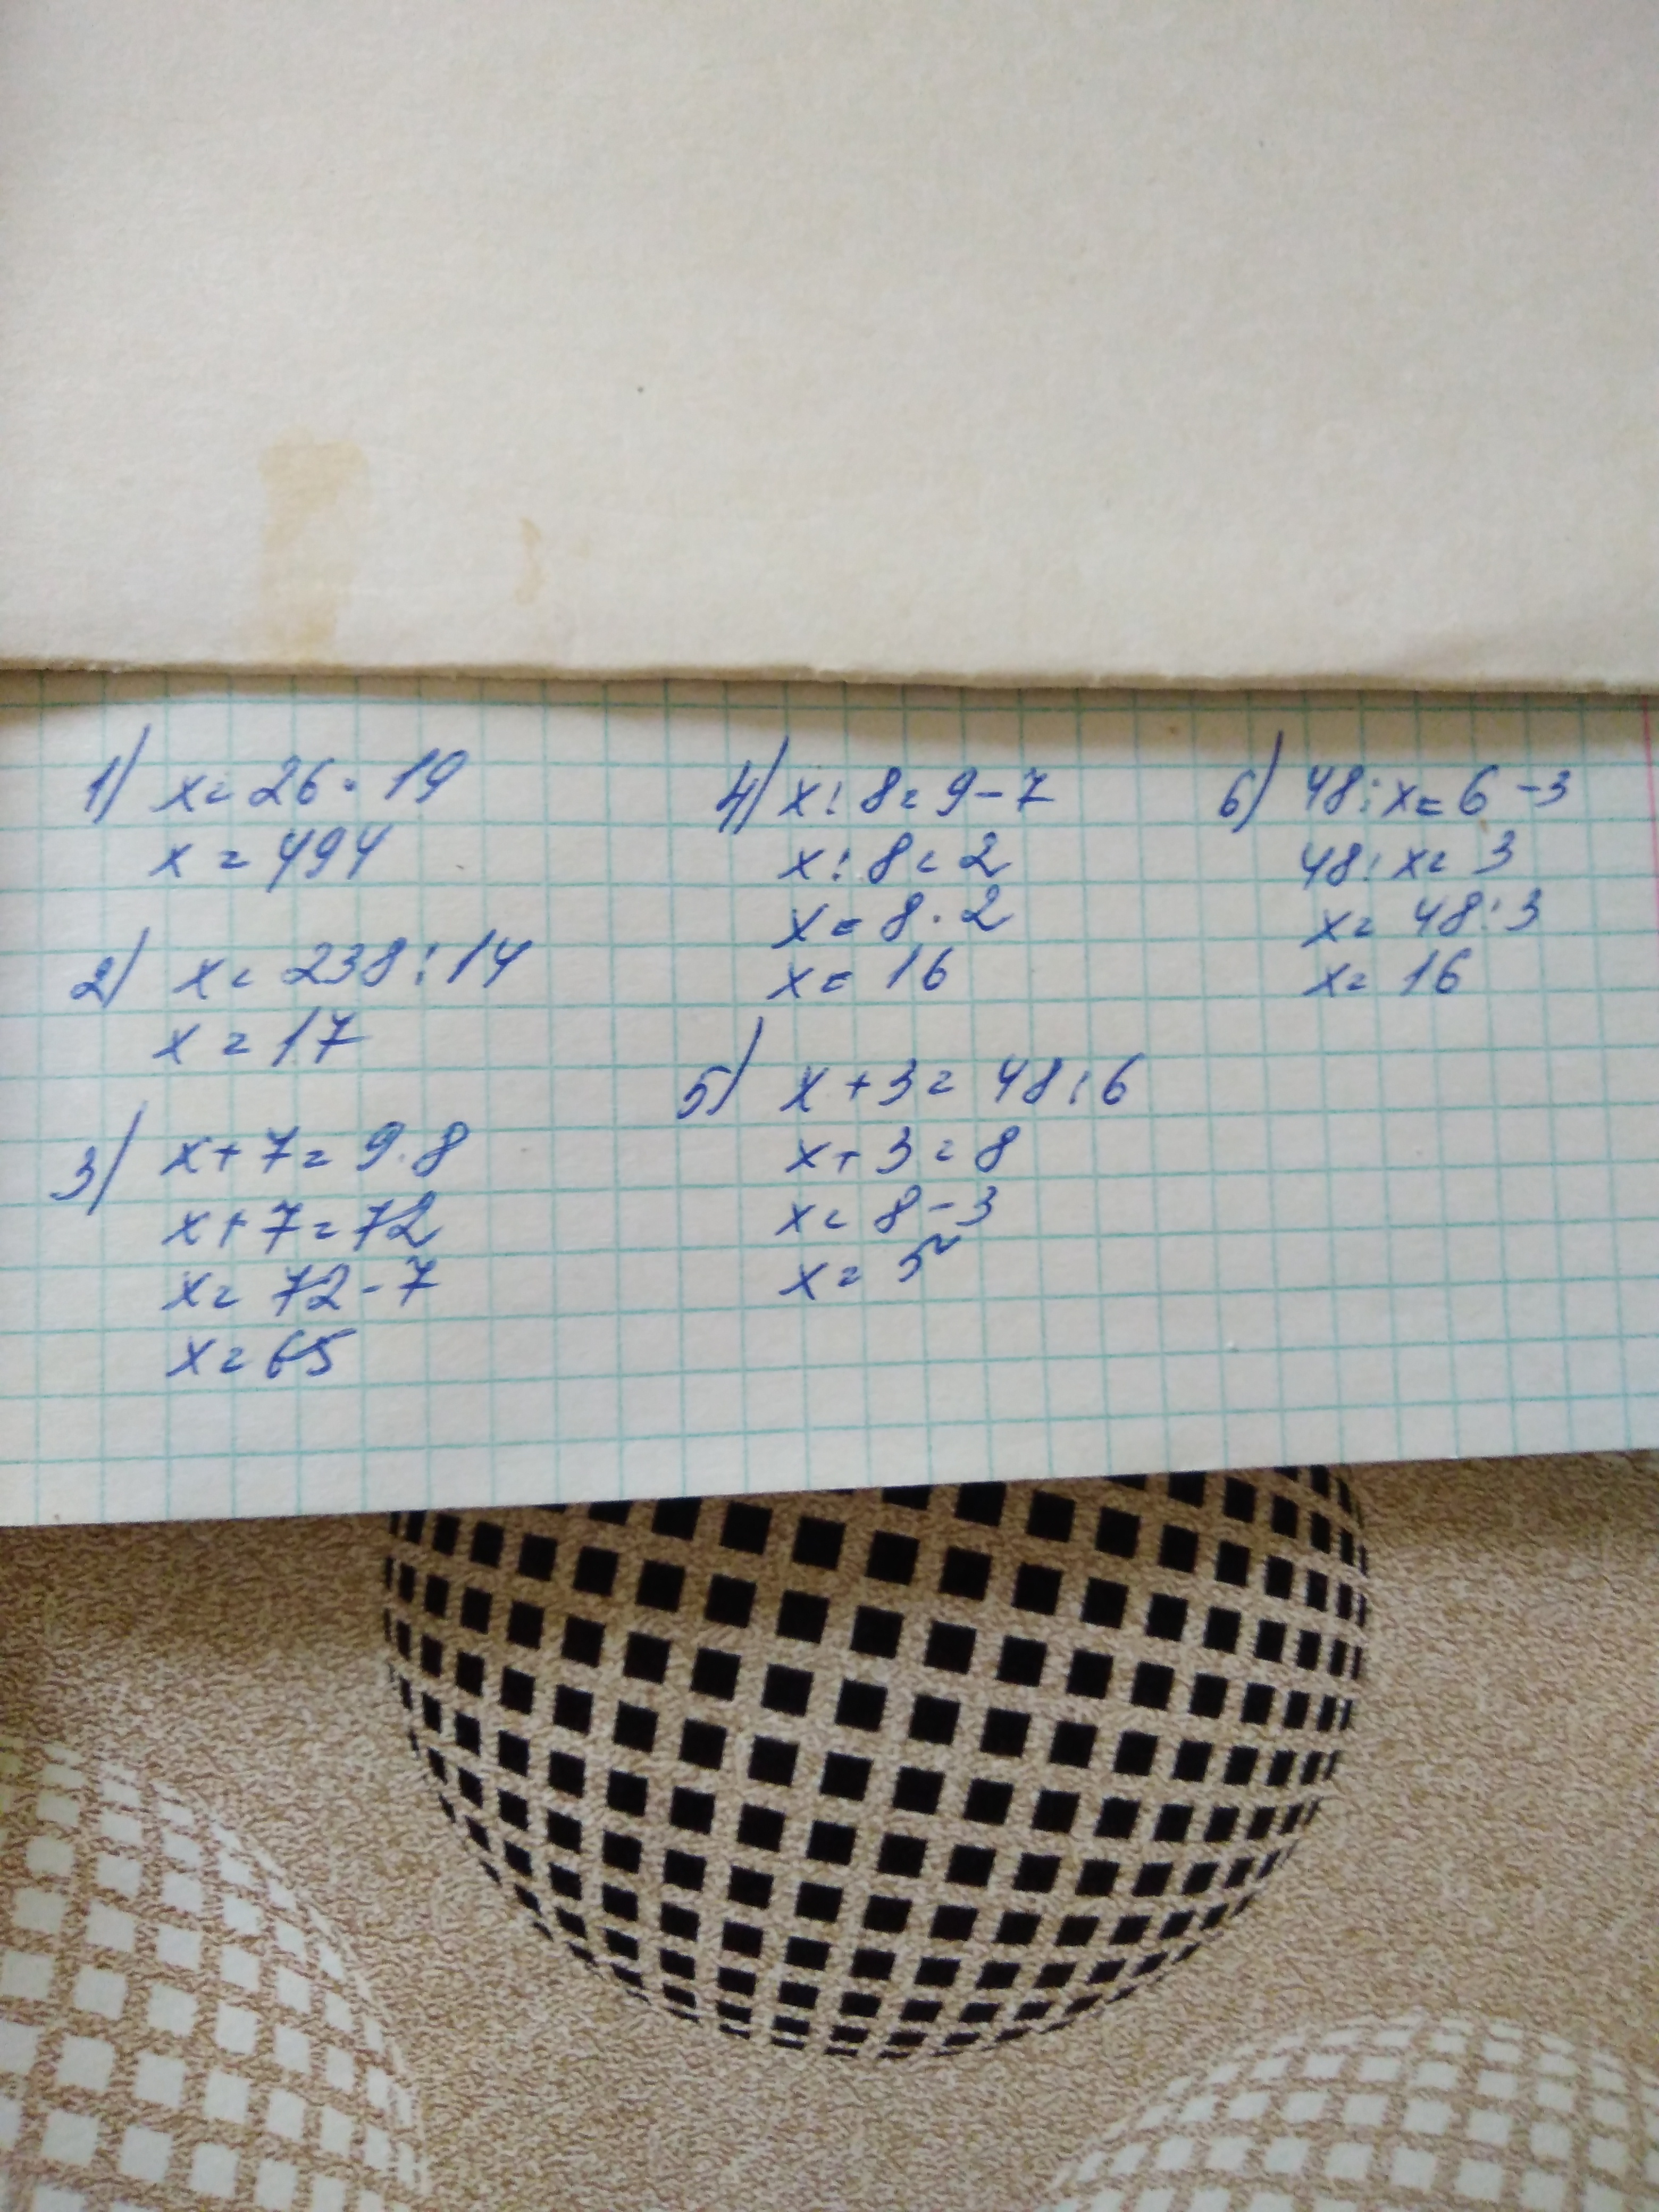 1) x = 26 · 19
x = 494
2) x = 238 : 14
x = 17
3) x + 7 = 9 · 8
x + 7 = 72
x = 72 - 7
x = 65
4) x : 8 = 9 - 7
x : 8 = 2
x = 8 · 2
x = 16
5) x + 3 = 48 : 6
x + 3 = 8
x = 8 - 3
x = 5
6) 48 : x = 6 - 3
48 : x = 3
x = 48 : 3
x = 16